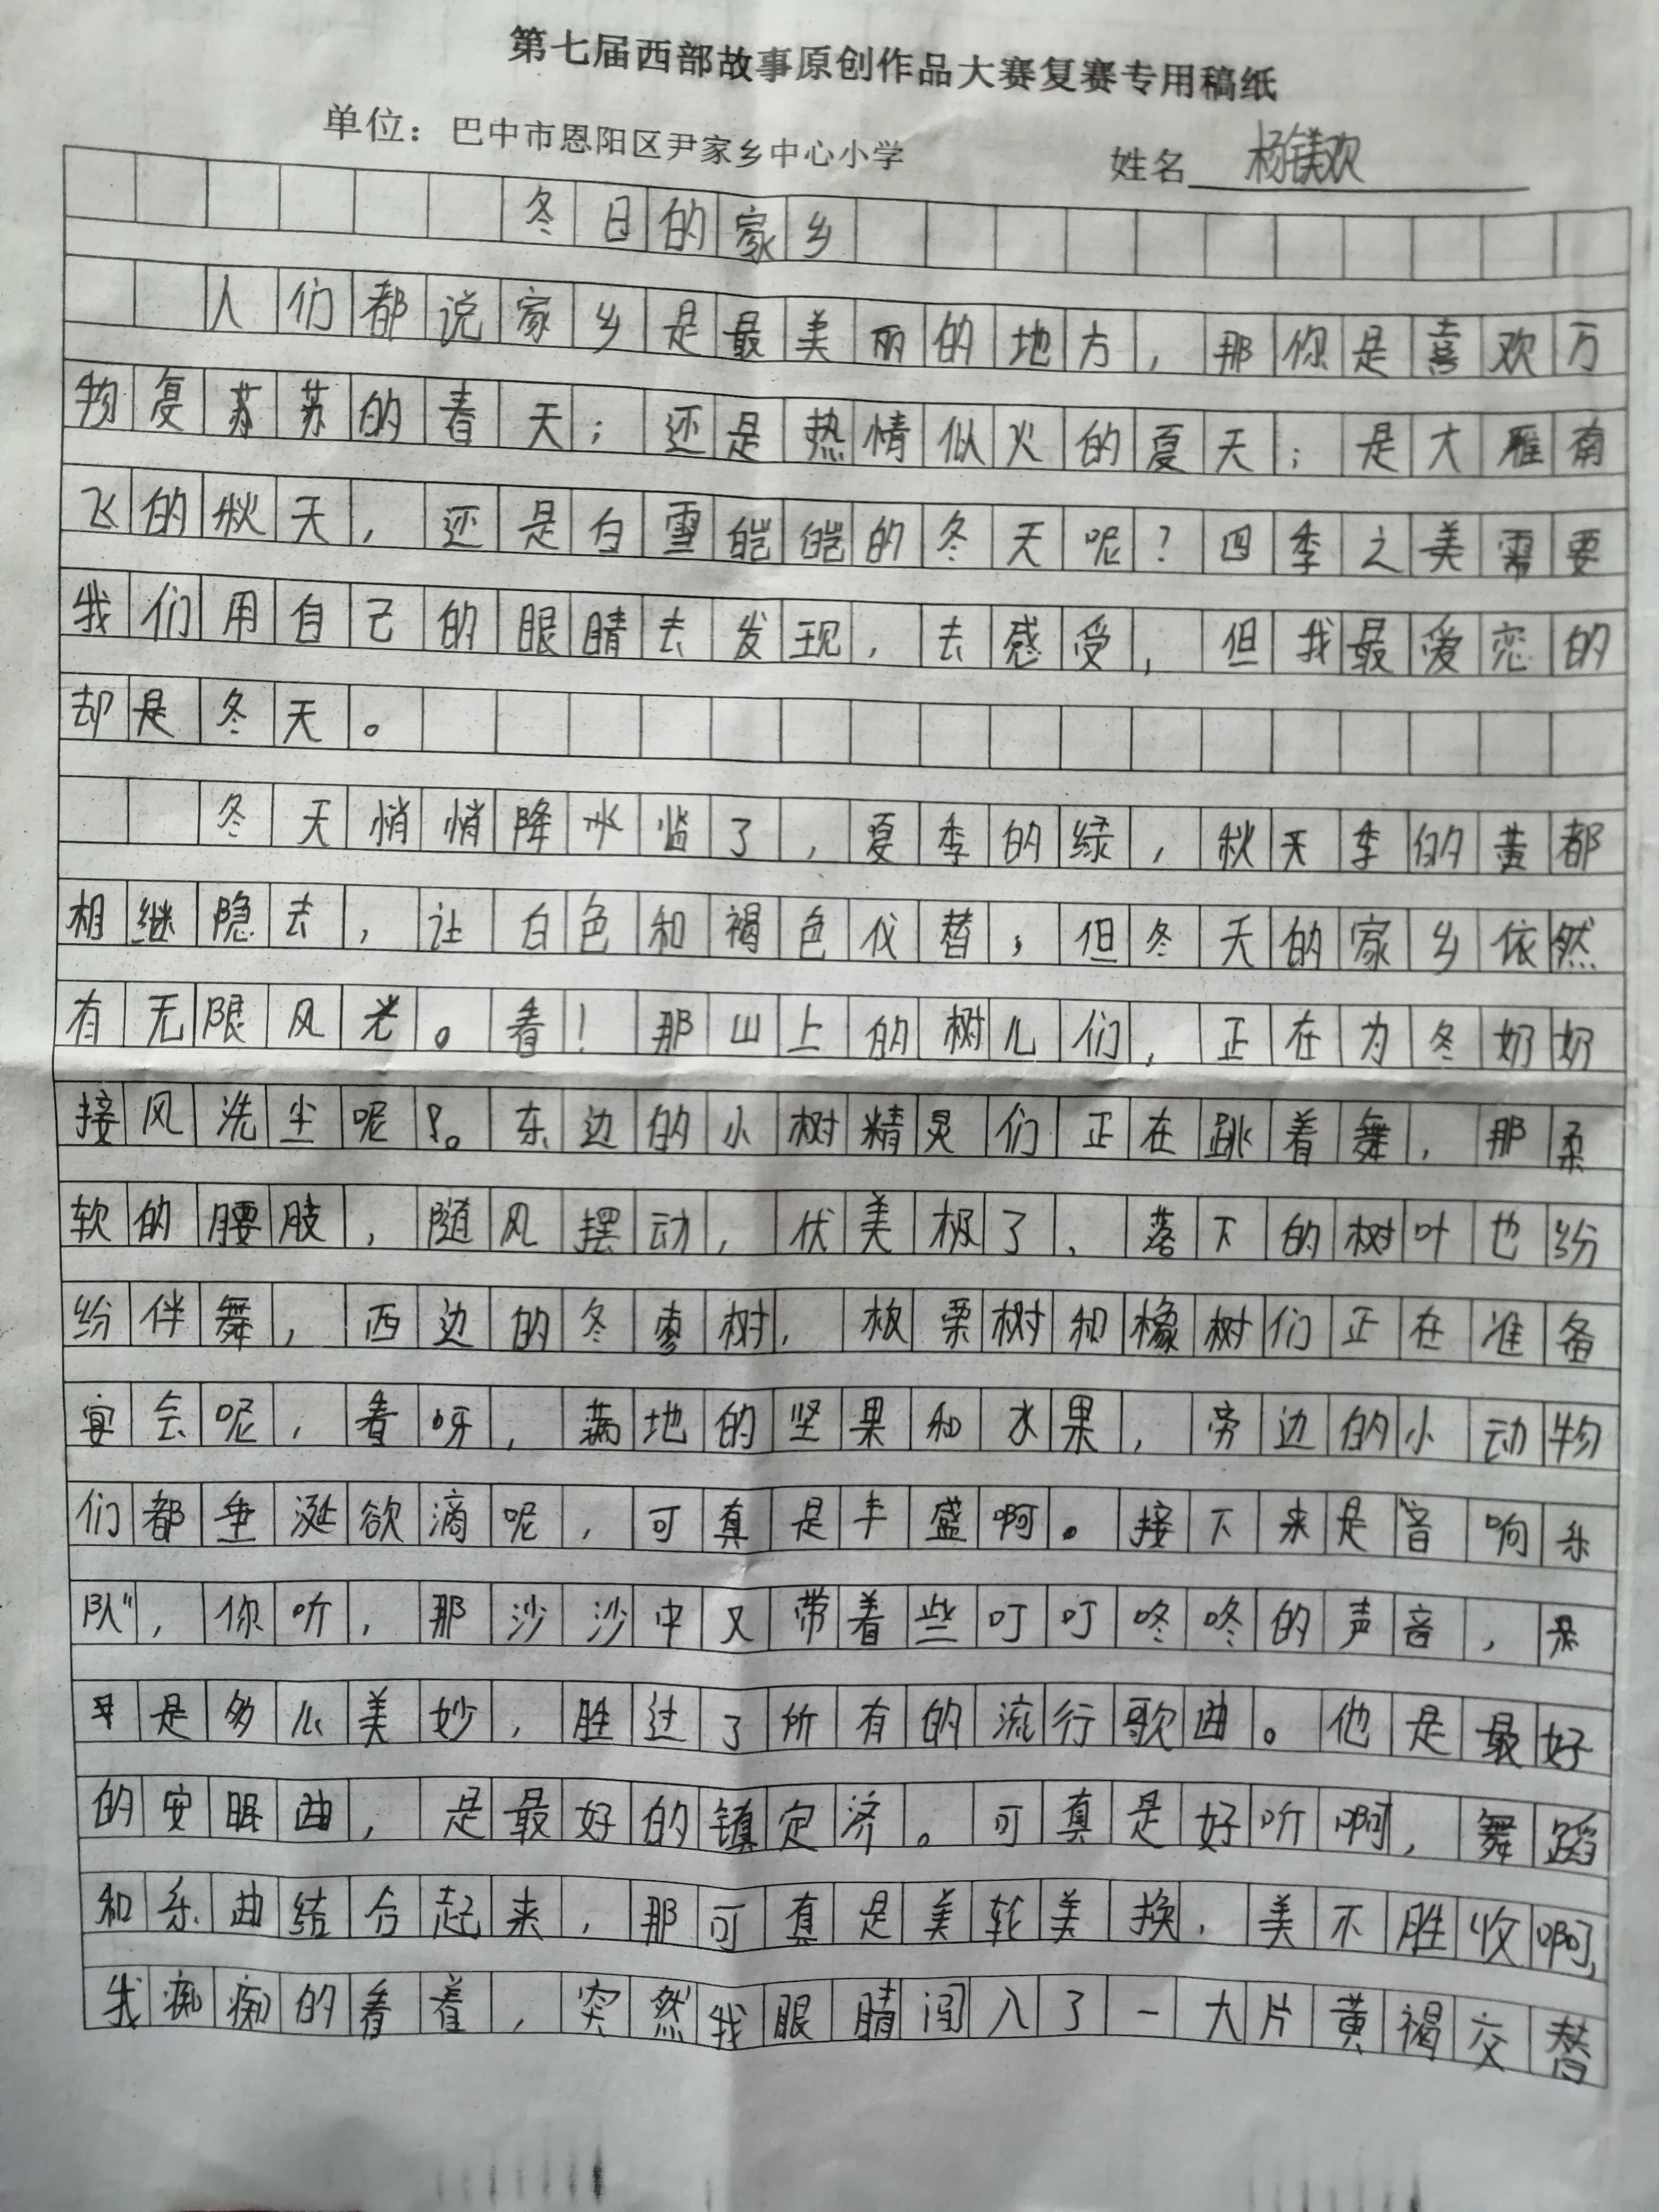 第七届西部故事原创作品大赛复赛专用稿纸
单位：巴中市恩阳区尹家乡中心小学 姓名 杨镁欢
冬日的家乡
人们都说家乡是最美丽的地方，那你是喜欢万
物复苏苏的春天；还是热情似火的夏天；是大雁南
飞的秋天，还是白雪皑皑的冬天呢？四季之美需要
我们用自己的眼睛去发现，去感受，但我最爱恋的
却是冬天。
冬天悄悄降临了，夏季的绿，秋天季的黄都
相继隐去，让白色和褐色代替，但冬天的家乡依然
有无限风光。看！那山上的树儿们，正在为冬奶奶
接风洗尘呢！。东边的小树精灵们正在跳着舞，那柔
软的腰肢，随风摆动，优美极了，落下的树叶也纷
纷伴舞，西边的冬枣树，板栗树和橡树们正在准备
宴会呢，看呀，满地的坚果和水果，旁边的小动物
们都垂涎欲滴呢，可真是丰盛啊。接下来是“音响乐
队”，你听，那沙沙中又带着些叮叮咚咚的声音，
是多么美妙，胜过了所有的流行歌曲。他是最好
的安眠曲，是最好的镇定济。可真是好听啊，舞蹈
和乐曲结合起来，那可真是美轮美换，美不胜收啊，
我痴痴的看着，突然我眼睛闯入了一大片黄褐交替